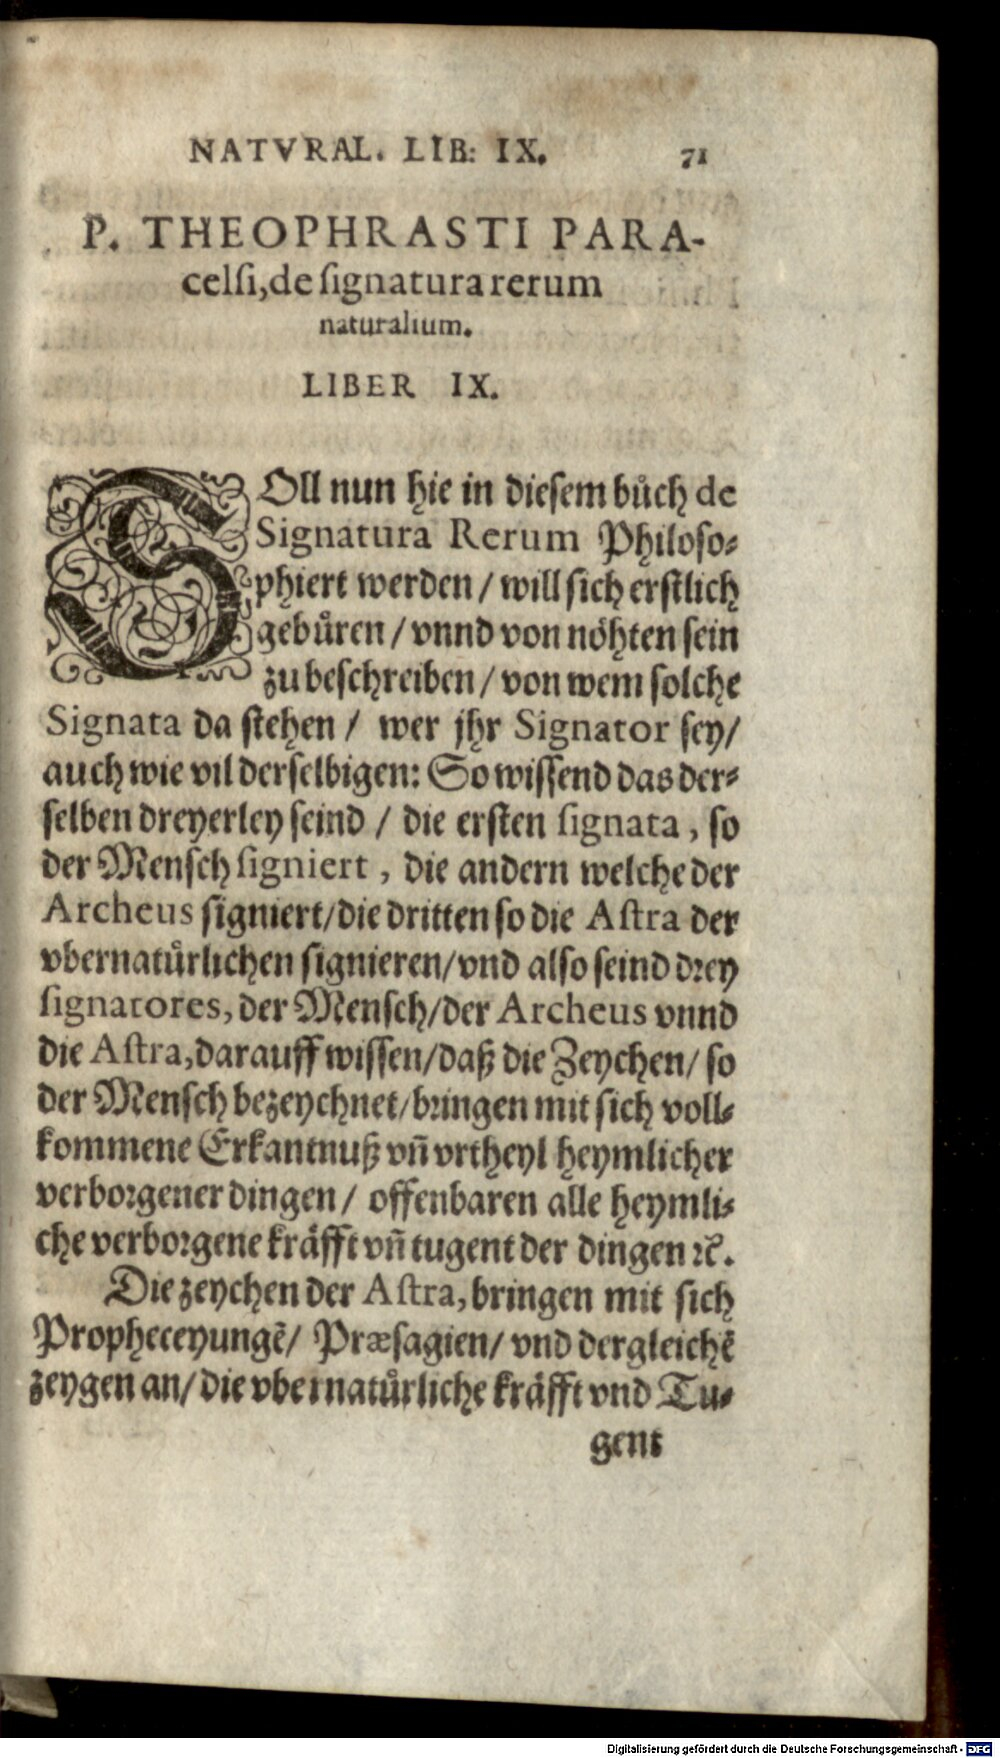 NATVRAL. LIB: IX. 71
P. THEOPHRASTI PARA-
celsi, de signatura rerum
naturalium.
LIBER IX.
SOll nun hie in diesem bůch de
Signatura Rerum Philoso-
phiert werden / will sich erstlich
gebůren / vnnd von nöhten sein
zu beschreiben / von wem solche
Signata da stehen / wer jhr Signator sey /
auch wie vil derselbigen: So wissend das der-
selben dreyerley seind / die ersten signata, so
der Mensch signiert, die andern welche der
Archeus signiert / die dritten so die Astra der
vbernatůrlichen signieren / vnd also seind drey
signatores, der Mensch / der Archeus vnnd
die Astra, darauff wissen / daß die Zeychen / so
der Mensch bezeychnet / bringen mit sich voll-
kommene Erkantnuß vñ vrtheyl heymlicher
verborgener dingen / offenbaren alle heymli-
che verborgene kräfft vñ tugent der dingen ꝛc̃.
Die zeychen der Astra, bringen mit sich
Propheceyungẽ / Præsagien / vnd dergleichẽ
zeygen an / die vbernatůrliche kräfft vnd Tu-
gent
Digitalisierung gefördert durch die Deutsche Forschungsgemeinschaft - DFG